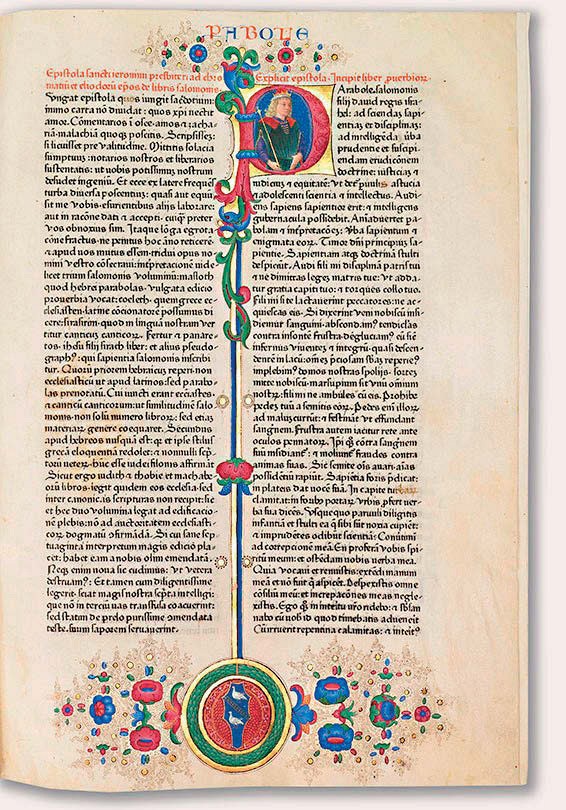 PABOLE
Epistola sancti ieronimi presbiteri ad chro
matiū et eliodorū epōs de libris salomonis
Ungat epistola quos iungit sacdotium:
immo carta nō diuidat: quos xpi nectit
amor. Cōmentarios ī osee. amos ⁊ zacha-
riā. malachiā quoqȝ poscitis. Scripsissem:
si licuisset pre valitudine. Mittitis solacia
sumptuum: notarios nostros et librarios
sustentatis: ut vobis potissimum nostrum
desudet ingeniū. Et ecce ex latere frequēs
turba diuersa poscentium: quasi aut equū
sit me vobis esurientibus aliis laborare:
aut in racōne dati ⁊ accepti. cuiqȝ preter
vos obnoxius sim. Itaqȝ lōga egrotati
cōne fractus. ne penitus hoc āno reticerē
⁊ apud vos mutus essem. tridui opus no
mini vestro cōsecraui: īnterpretacionē uide
licet trium salomonis voluminum: masloth
quod hebrei parabolas. vulgata edicio
prouerbia vocat: coeleth. quem grece ec
clesiasten. latine cōcionatorē possumus di
cere: sirasirim. quod in lingua nostram ver
titur canticū canticorum. Fertur ⁊ panare-
tos. ihesu filii sirach liber: et alius pseudo-
graphus: qui sapientia salomonis inscribi
tur. Quorū priorem hebraicum reperi. non
ecclesiasticū ut apud latinos: sed parabo
las prenotatū. Cui iuncti erant eccłiastes.
⁊ canticū canticorum: ut similitudinē salo
monis. non solū numero librorum: sed etiā
materiarum genere coequaret. Secundus
apud hebreos nusquā est: quia et ipse stilus
grecā eloquentiā redolet: ⁊ nonnulli scp
torū veterum. hūc esse iudei filonis affirmāt
Sicut ergo iudith ⁊ thobie et machabe
orū libros. legit quidem eos ecclesia. sed
inter canonicas scripturas non recipit: sic
et hec duo volumina legat ad edificacio
nē plebis: nō ad auctoritatem ecclesiasti-
corum dogmatū cōfirmādā. Si cui sane sep-
tuaginta interpretum magis edicio pla
cet: habet eam a nobis olim emendatā.
Neqȝ enim noua sic cudimus: ut vetera
destruamus. Et tamen cum diligentissime
legerit. sciat magis nostra scripta intelligi:
que nō in terciū vas trāsfusa coacuerint:
sed statim de prelo purissime cōmendata
teste. suum saporem seruauerint.
Explicit epistola. Incipit liber puerbiorum
Arabole salomonis
filij dauid regis isra-
hel: ad sciendam sapi
entiā et disciplinam:
ad intelligēda uba
prudentie et suscipi-
endam erudicionem
doctrine: iusticiā et
iudicium ⁊ equitatē: Ut detur puulis astucia
⁊ adolescenti scientia et intellectus. Audi-
ens sapiens sapientior erit: ⁊ intelligens
gubernacula possidebit. Aniaduertet pa-
bolam ⁊ inspretacōnem: uba sapientum ⁊
enigmata eorum. Timor dni principium sa-
pientie. Sapientiam atqȝ doctrinā stulti
despiciunt. Audi fili mi disciplinā patris tui
⁊ ne dimittas legem matris tue: vt adda-
tur gratia capiti tuo: ⁊ torques collo tuo.
Fili mi si te lactauerint peccatores: ne ac-
quiescas eis. Si dixerint veni nobiscū insi-
diemur sanguini. abscondamus tendiclas
contra insontē frustra: deglutiamus eū sic
infernus viuentem ⁊ integrum. quasi descen-
dentem in lacum: omem pciosam sbām repiemus
implebimus domos nostras spolijs. sortem
mitte nobiscum: marsupium sit vnū omnium
nostrum: fili mi ne ambules cū eis. Prohibe
pedem tuū a semitis eorum. Pedes enī illorum
ad malum currūt: ⁊ festināt vt effundant
sanguinem. Frustra autem iacitur rete ante
oculos pennatorum. Ipi quoqȝ contra sanguinem
suū insidiantur: ⁊ moliuntur fraudes contra
animas suas. Sic semite omis auari. aīas
possidentiū rapiunt. Sapientia foris pdicat:
in plateis dat vocē suā. In capite turbarum
clamitat: in foribus portarum vrbis pfert ver-
ba sua dicens. Usquequo paruuli diligitis
infantiā et stulti ea que sibi sūt noxia cupient:
⁊ imprudentes odibūt scientiā: Conūtimi
ad correpcionē meā. En proferā vobis spi-
ritū meum: et ostēdam vobis verba mea.
Quia vocaui et rennuistis: extēdi manum
meā et nō fuit qui aspiceret. Despexistis omne
cōsiliū meū: et increpacōnes meas neglex-
existis. Ego quoqȝ in interitu vrō ridebo: ⁊ sbsan
nabo cū uobis id quod timebatis aduenerit
Cū irruerit repentina calamitas: ⁊ interitus